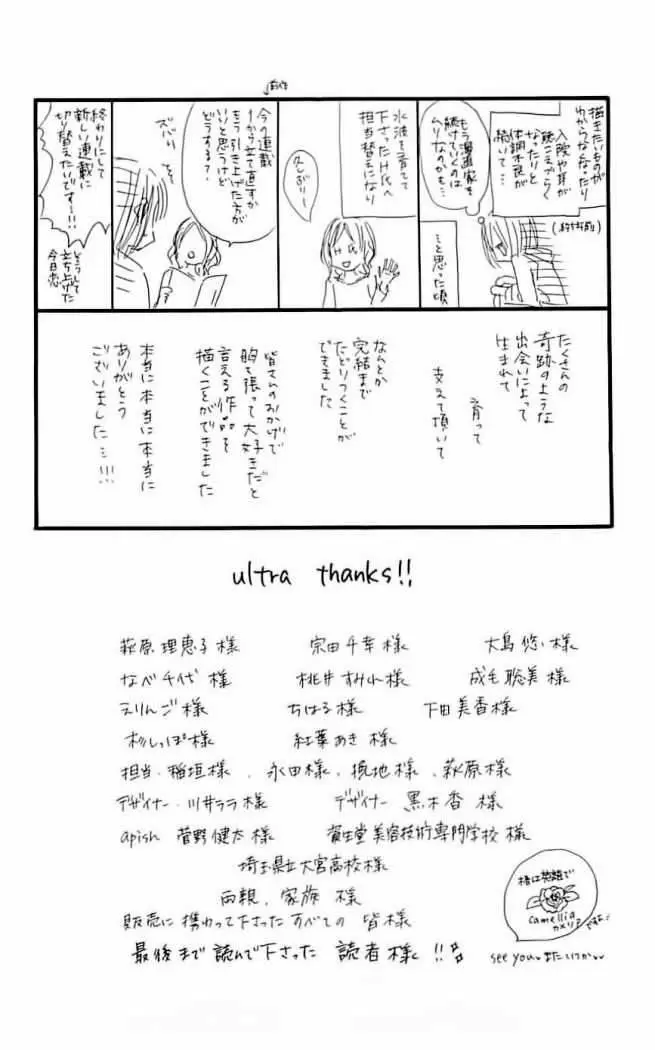 ↓前作
描きたいものが
わからなくなったり
入院や耳が
聴こえづらく
なったりと
体調不良が
続いて…
もう漫画家を
続けていくのは
ムリなのかも…
…と思った頃
水波を育てて
下さったH氏へ
担当替えになり
久しぶりー
H氏
今の連載
1から立て直すか
もう引き上げた方が
いいと思うけど
どうする?
ズバリ
終わりにして
新しい連載に
切り替えたいですー!!
そうして
立ち上げた
今日恋
たくさんの
奇跡のような
出会いによって
生まれて
育って
支えて頂いて
なんとか
完結まで
たどりつくことが
できました
皆さんのおかげで
胸を張って大好きだと
言える作品を
描くことができました
本当に本当に本当に
ありがとう
ございました…!!!
ultra thanks!!
萩原理恵子様 宗田千幸様 大島悠い様
なべ千代様 桃井すみれ様 成毛聡美様
えりんご様 ちはる様 下田美香様
杉しっぽ様 紅葉あき様
担当・稲垣様、永田様、挽地様、萩原様
デザイナー・川井ララ様 デザイナー 黒木香様
apish 菅野健太様 資生堂美容技術専門学校様
埼玉県立大宮高校様
両親、家族様
販売に携わって下さったすべての皆様
最後まで読んで下さった 読者様!!
椿は英語で
camellia
カメリア
ですよ
see you またいつか